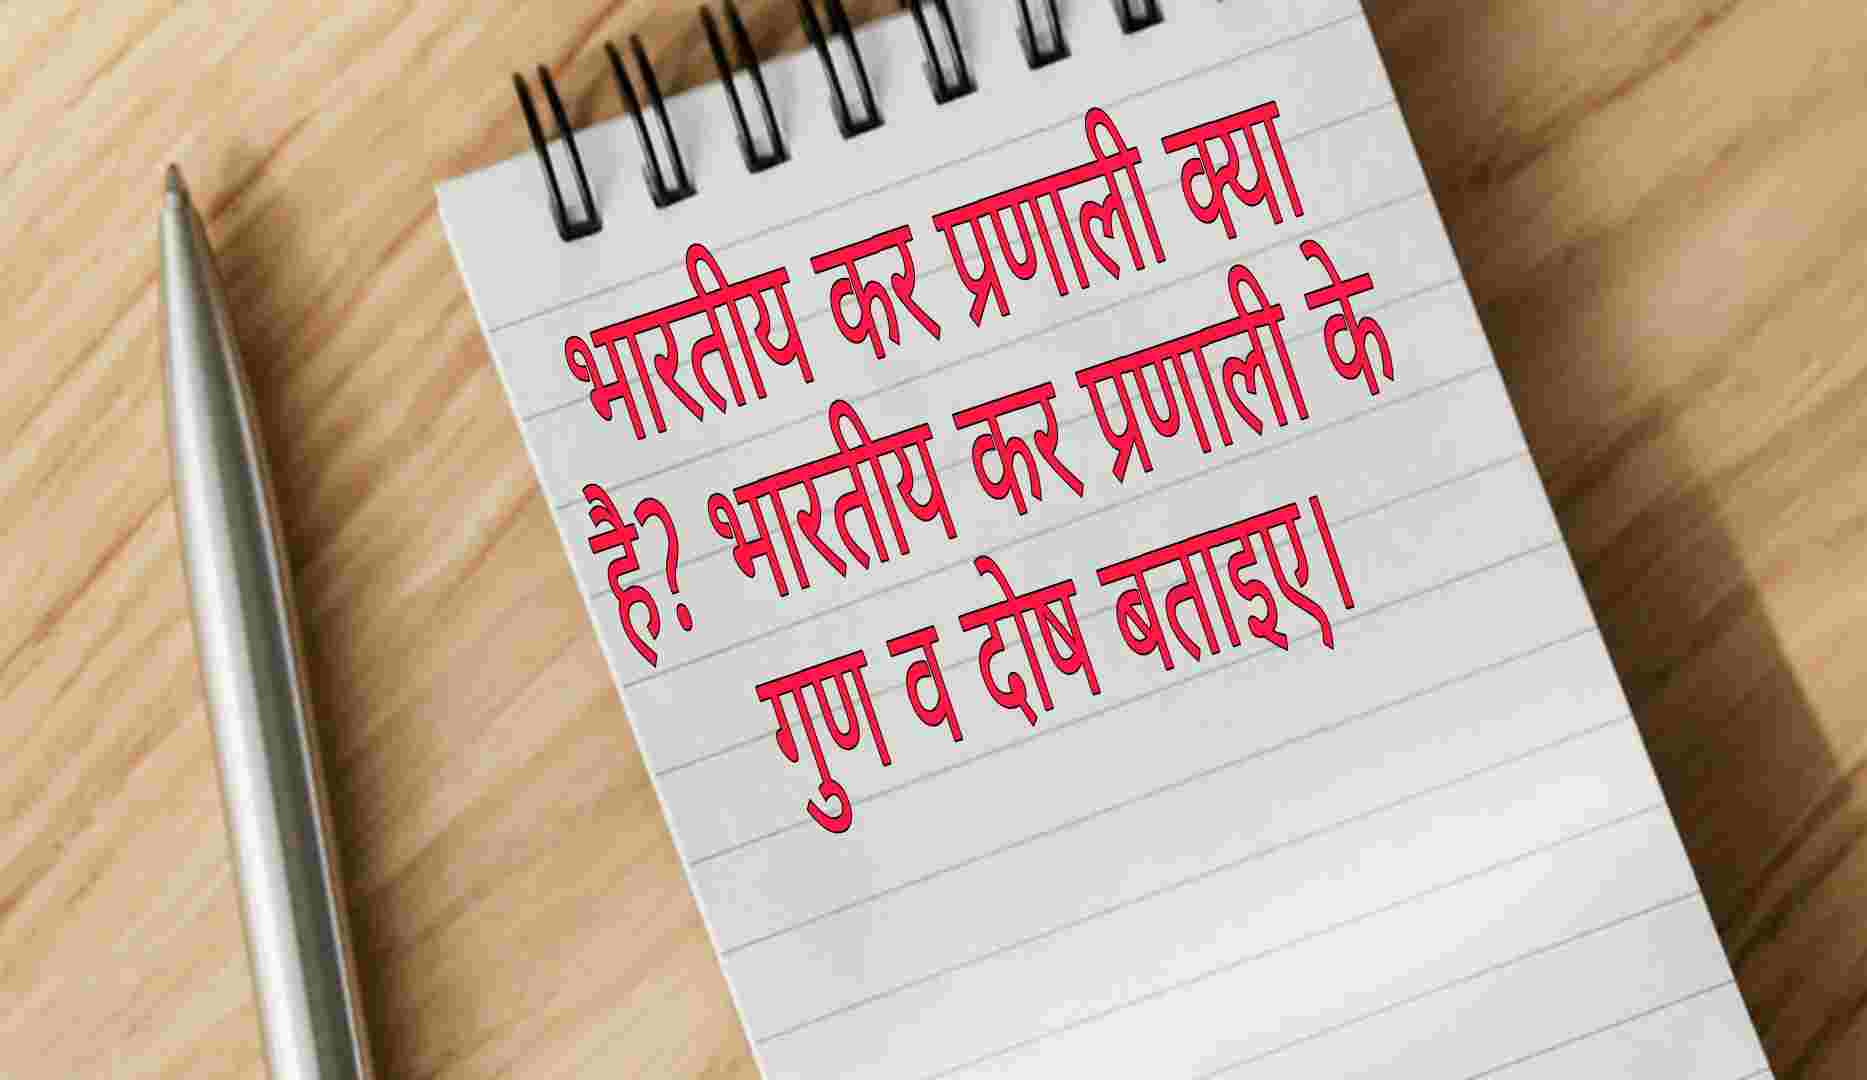 भारतीय कर प्रणाली क्या
है? भारतीय कर प्रणाली के
गुण व दोष बताइए।